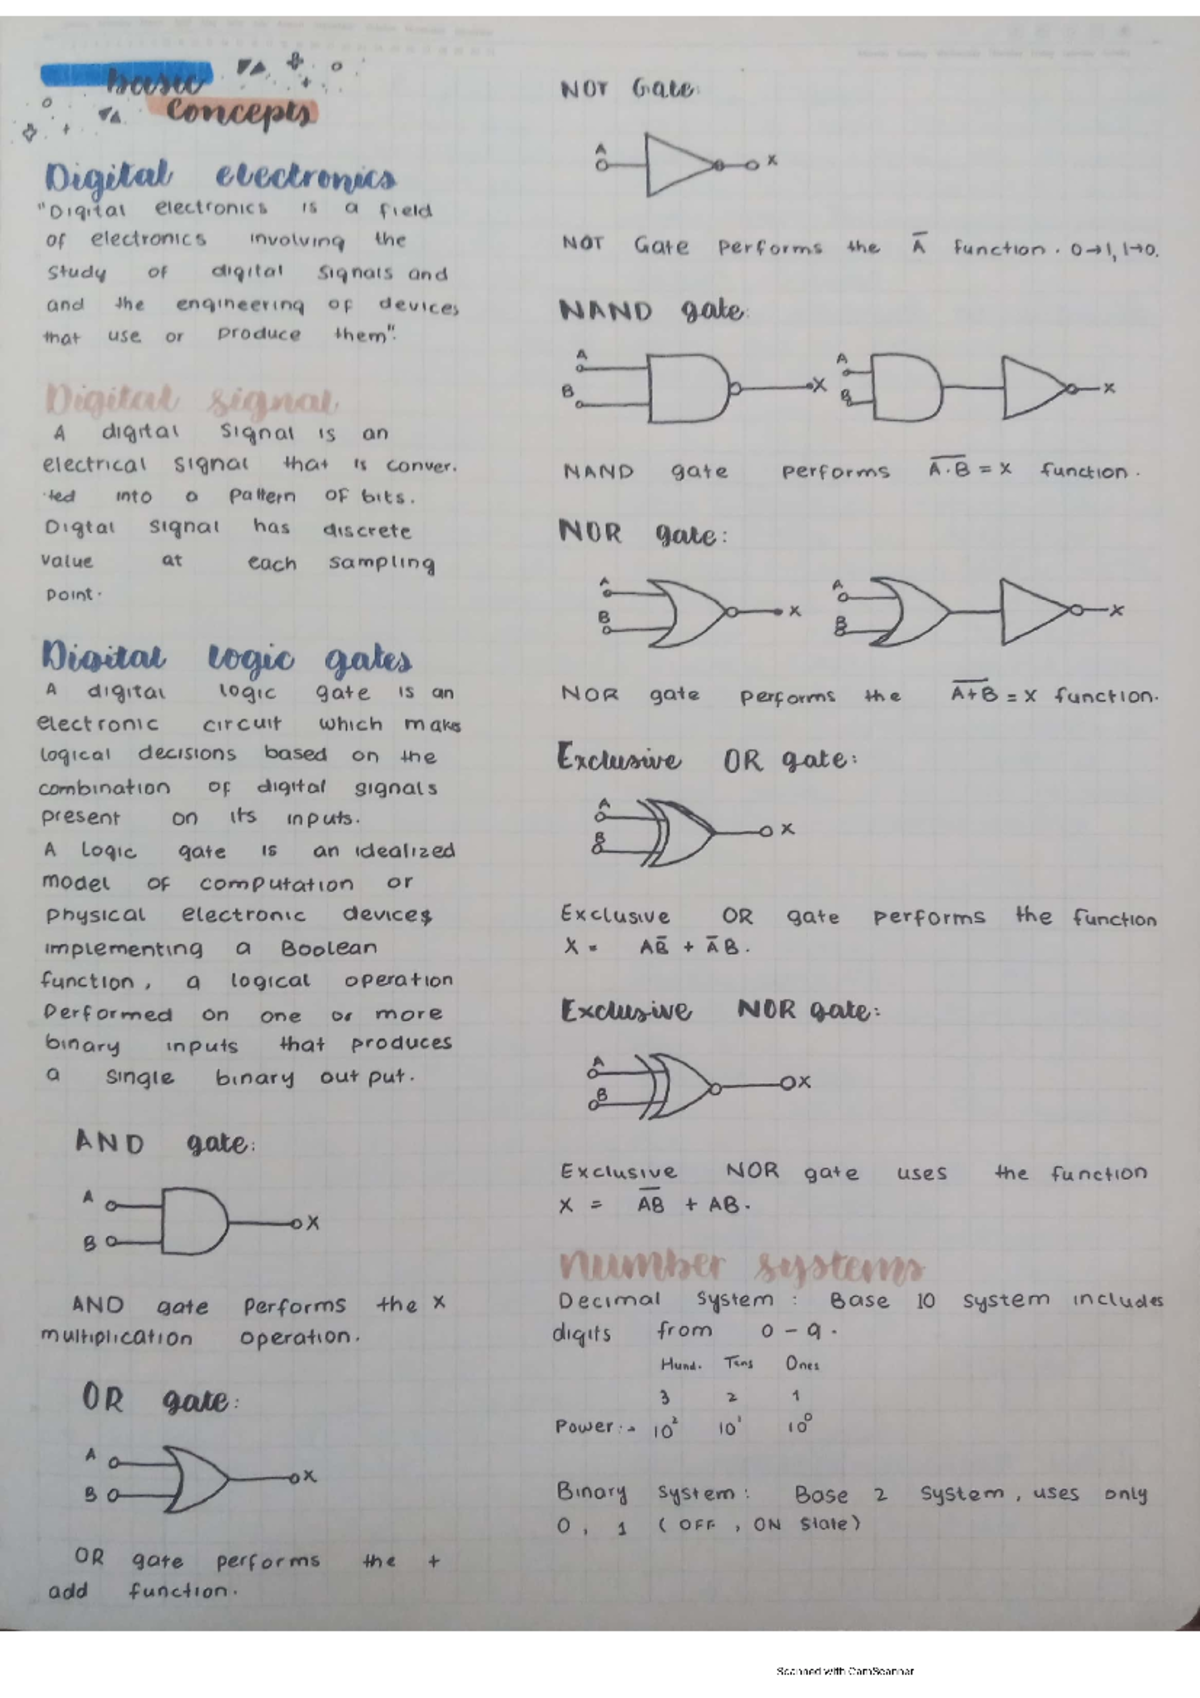 basic
concepts
Digital electronics
"Digital electronics is a field
of electronics involving the
study of digital signals and
and the engineering of devices
that use or produce them".
Digital signal
A digital signal is an
electrical signal that is conver.
ted into a pattern of bits.
Digtal signal has discrete
value at each sampling
point.
Digital logic gates
A digital logic gate is an
electronic circuit which makes
logical decisions based on the
combination of digital signals
present on its inputs.
A logic gate is an idealized
model of computation or
physical electronic devices
implementing a Boolean
function, a logical operation
performed on one or more
binary inputs that produces
a single binary output.
AND gate:
A
B
X
AND gate performs the X
multiplication operation.
OR gate:
A
B
X
OR gate performs the +
add function.
NOT Gate:
A
X
NOT Gate performs the A̅ function. 0→1, 1→0.
NAND gate:
A
B
X
A
B
X
NAND gate performs \overline{A·B} = X function.
NOR gate:
A
B
X
A
B
X
NOR gate performs the \overline{A+B} = X function.
Exclusive OR gate:
A
B
X
Exclusive OR gate performs the function
X = AB̅ + A̅B.
Exclusive NOR gate:
A
B
X
Exclusive NOR gate uses the function
X = \overline{AB} + AB.
Number systems
Decimal system : Base 10 system includes
digits from 0 – 9.
Hund. Tens Ones
3 2 1
Power:- 10² 10¹ 10⁰
Binary system : Base 2 system, uses only
0, 1 (OFF, ON State)
Scanned with CamScanner